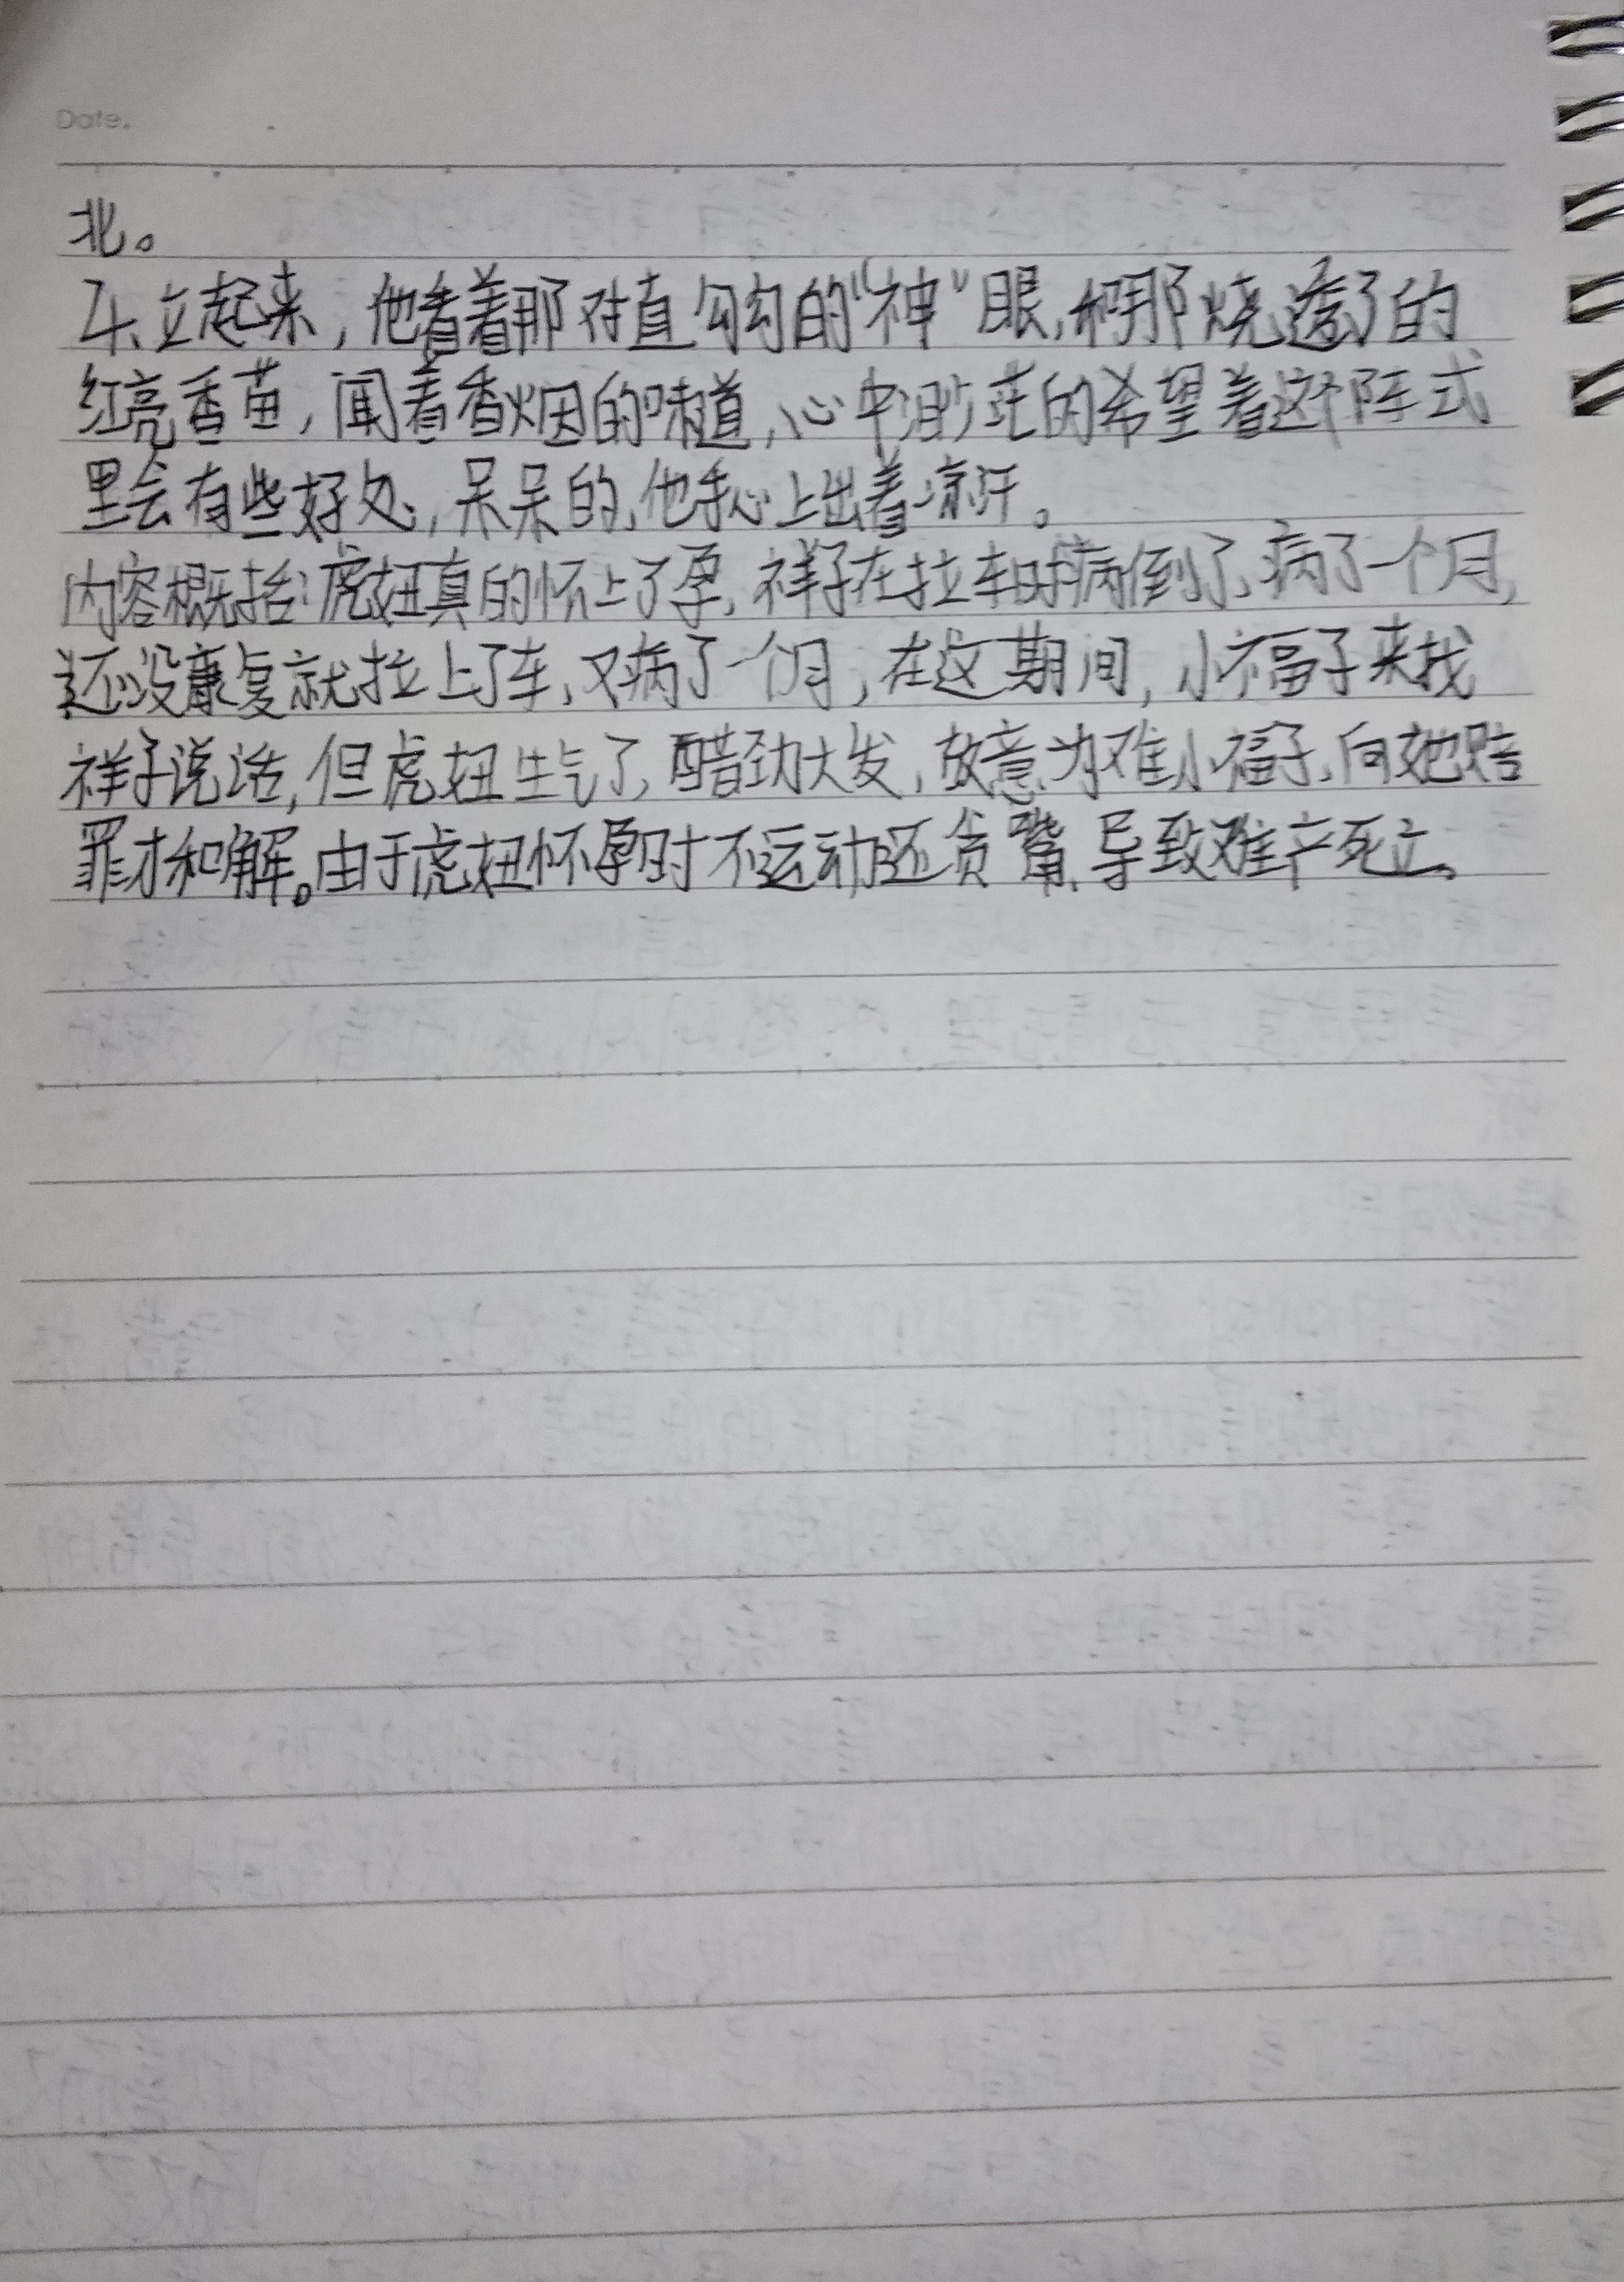 Date.
北。
4、立起来，他看着那对直勾勾的“神”眼，和那烧透了的
红亮香苗，闻着香烟的味道，心中渺茫的希望着这个阵式
里会有些好处，呆呆的，他手心上出着凉汗。
内容概括：虎妞真的怀上了孕，祥子在拉车时病倒了，病了一个月，
还没康复就拉上了车，又病了一个月，在这期间，小福子来找
祥子说话，但虎妞生气了，醋劲大发，故意为难小福子，向她赔
罪才和解。由于虎妞怀孕时不运动还贪嘴，导致难产死亡。